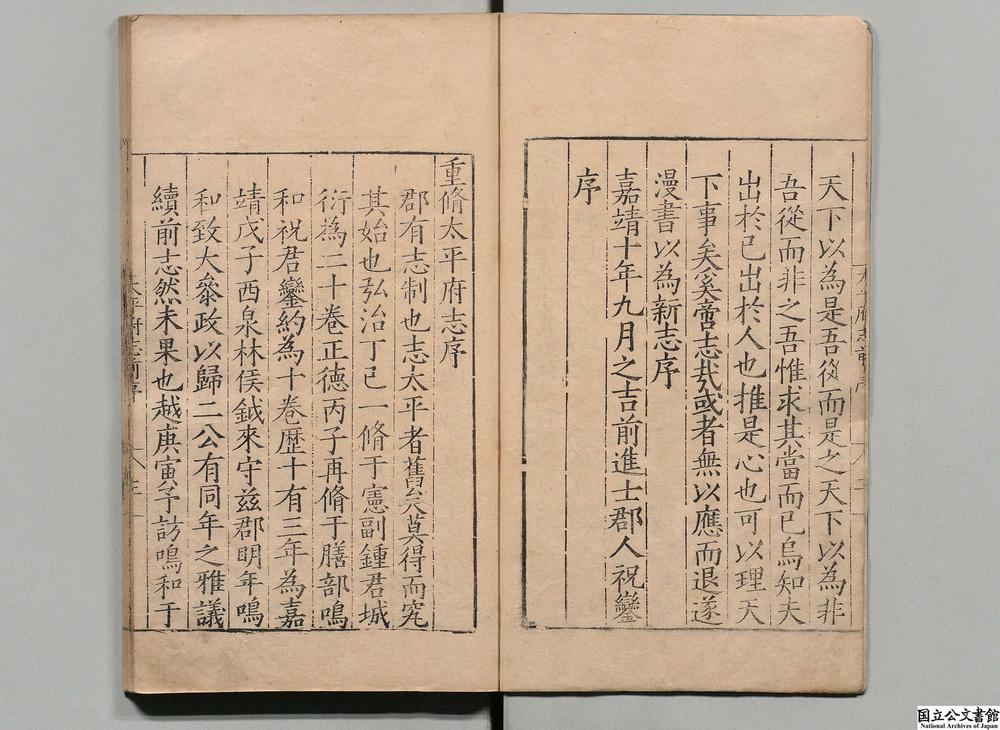 天下以為是吾從而是之天下以為非
吾從而非之吾惟求其當而已烏知夫
出於己出於人也推是心也可以理天
下事矣奚啻志㢤或者無以應而退遂
漫書以為新志序
嘉靖十年九月之吉前進士郡人祝鑾
序
重脩太平府志序
郡有志制也志太平者舊矣莫得而究
其始也弘治丁巳一脩于憲副鍾君城
衍為二十卷正德丙子再脩于膳部鳴
和祝君鑾約為十卷歷十有三年為嘉
靖戊子西泉林侯鉞來守兹郡明年鳴
和致大叅政以歸二公有同年之雅議
續前志然未果也越庚寅予訪鳴和于
国立公文書館
National Archives of Japan